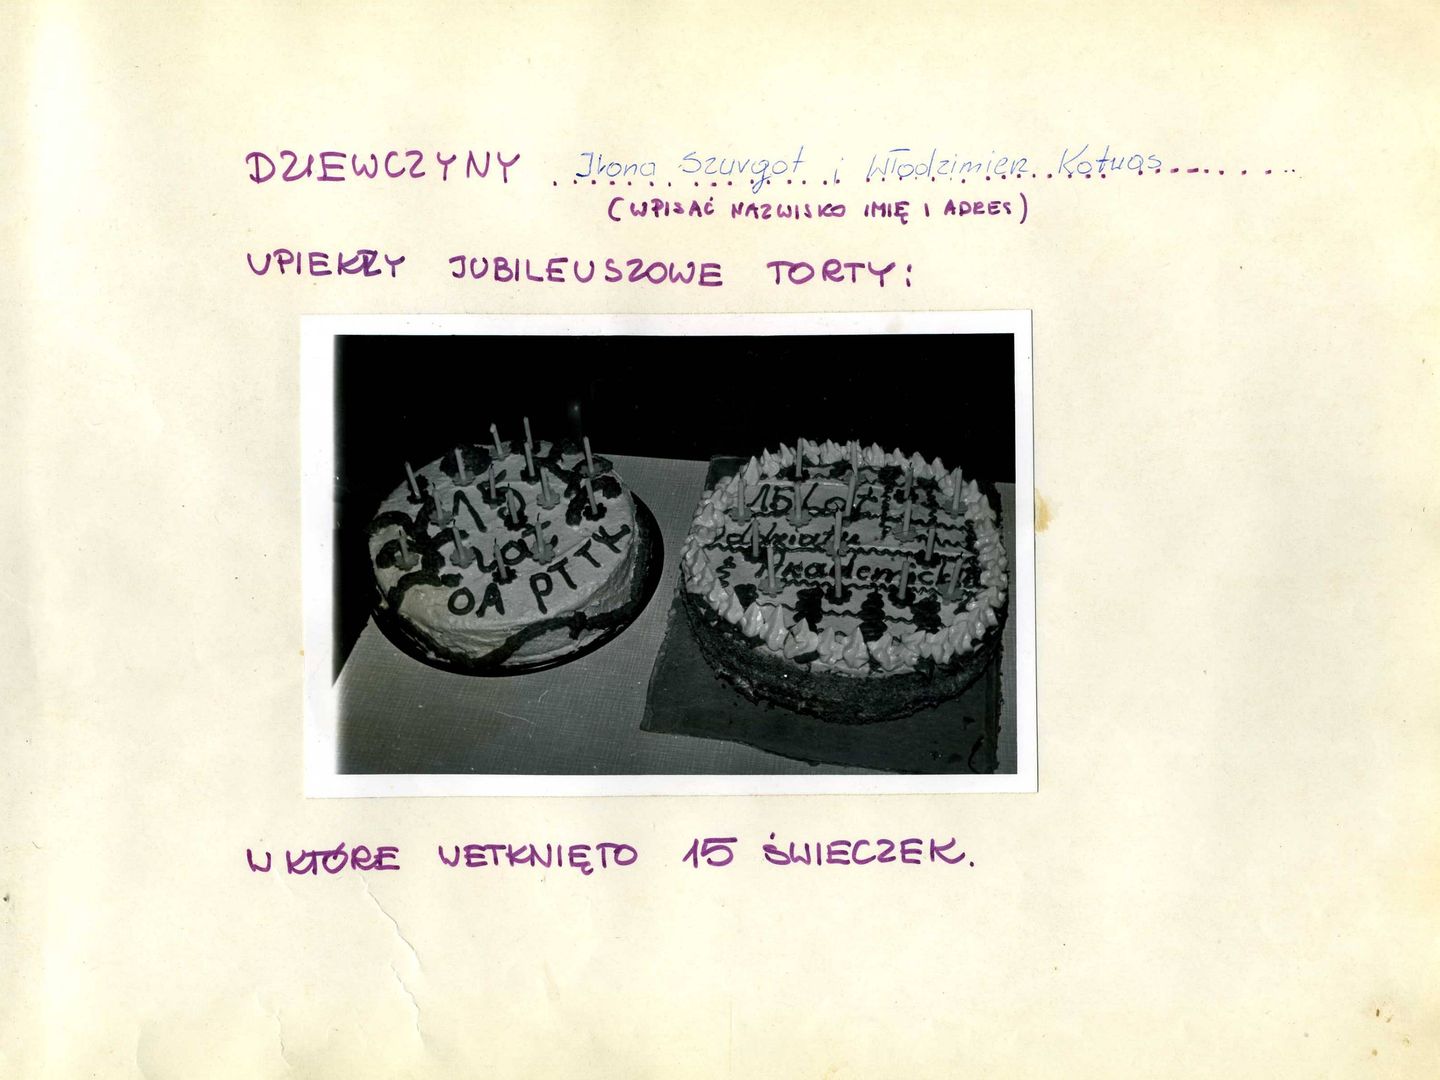 DZIEWCZYNY Ilona Szurgot i Włodzimierz Kotwas
(WPISAĆ NAZWISKO IMIĘ I ADRES)
UPIEKŁY JUBILEUSZOWE TORTY:
15
lat
OA PTTK
15 Lat
Oddziału
Akademick
W KTÓRE WETKNIĘTO 15 ŚWIECZEK.